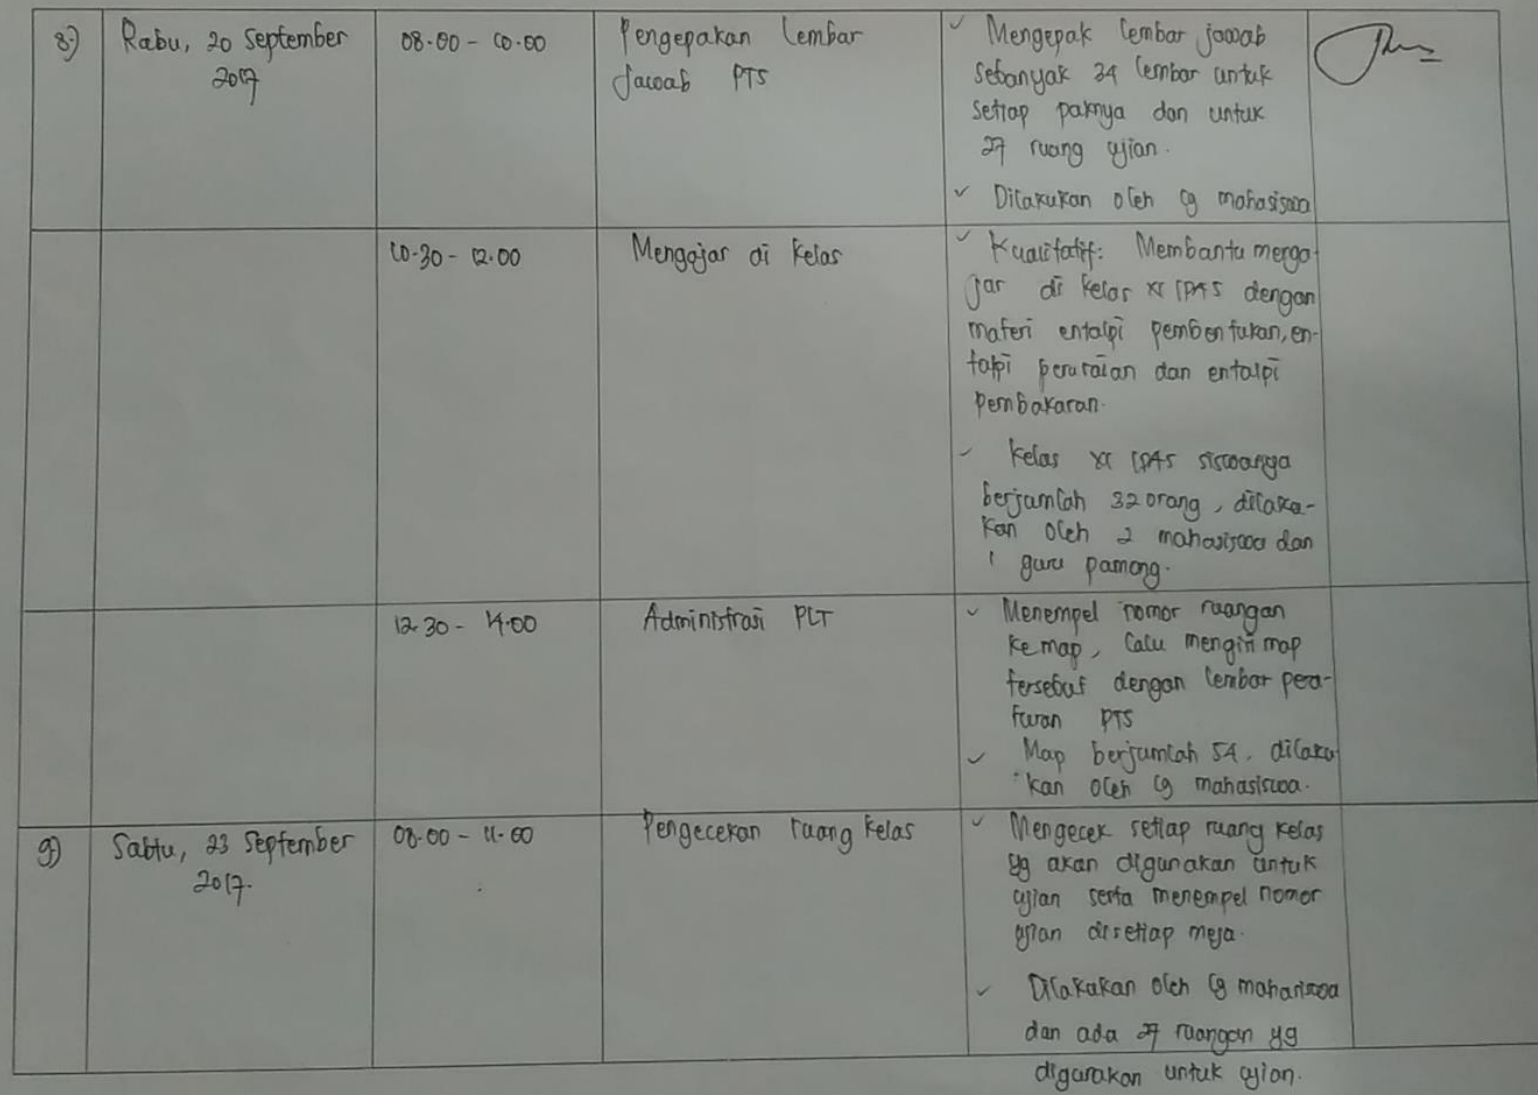 8.) Rabu, 20 September 08.00 - 10.00 Pengepakan lembar ✓ Mengepak lembar jawab
2017 Jawab PTS sebanyak 34 lembar untuk
setiap paknya dan untuk
27 ruang ujian.
✓ Dilakukan oleh 19 mahasiswa
10.30 - 12.00 Mengajar di kelas ✓ Kualitatif: Membantu menga-
jar di kelas XI IPA5 dengan
materi entalpi pembentukan, en-
talpi peruraian dan entalpi
pembakaran.
✓ Kelas XI IPA5 siswanya
berjumlah 32 orang, dilaku-
kan oleh 2 mahasiswa dan
1 guru pamong.
12.30 - 14.00 Administrasi PLT ✓ Menempel nomor ruangan
ke map, lalu mengisi map
tersebut dengan lembar pera-
turan PTS
✓ Map berjumlah 54, dilaku
kan oleh 19 mahasiswa.
9.) Sabtu, 23 September 08.00 - 11.00 Pengecekan ruang kelas ✓ Mengecek setiap ruang kelas
2017. yg akan digunakan untuk
ujian serta menempel nomor
ujian disetiap meja.
✓ Dilakukan oleh 19 mahasiswa
dan ada 27 ruangan yg
digunakan untuk ujian.